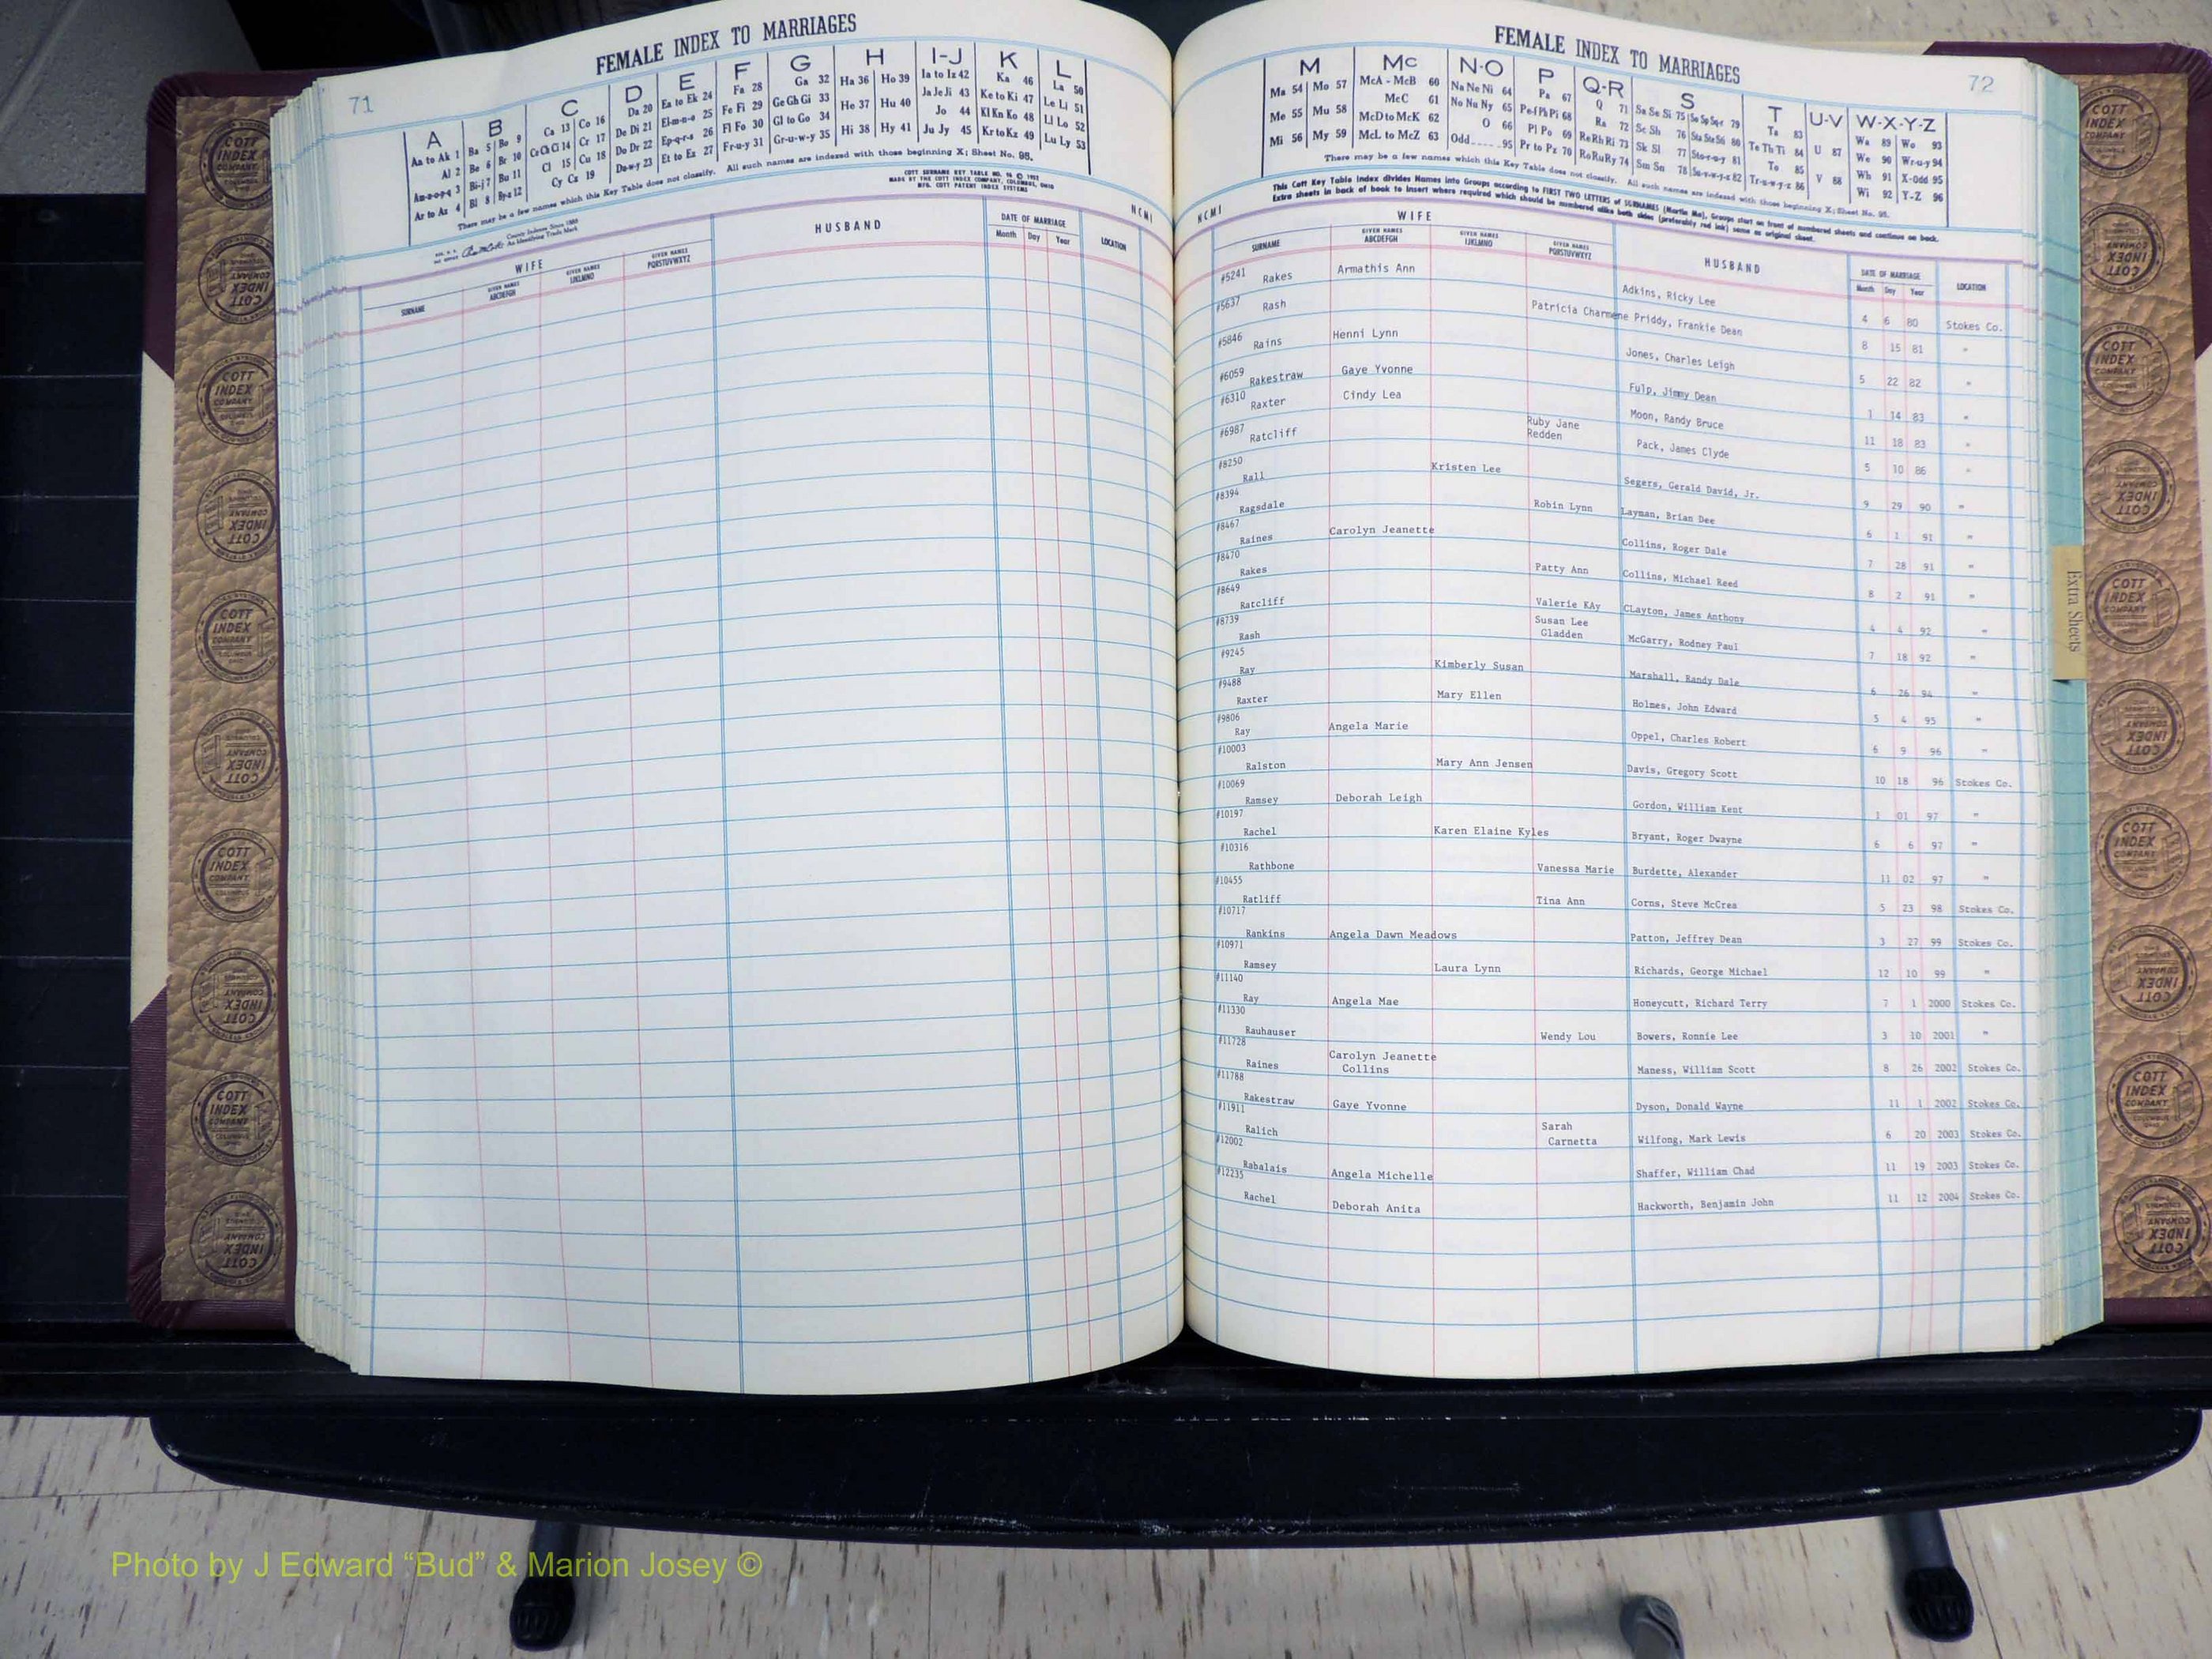 FEMALE INDEX TO MARRIAGES
71
A B C D E F G H I-J K L
Aa to Ak 1 Ba 5 Bo 9 Ca 13 Co 16 Da 20 Ea to Ek 24 Fa 28 Ga 32 Ha 36 Ho 39 Ia to Iz 42 Ka 46 La 50
Al 2 Be 6 Br 10 Ce Ch Ci 14 Cr 17 De Di 21 El-m-n-o 25 Fe Fi 29 Ge Gh Gi 33 He 37 Hu 40 Ja Je Ji 43 Ke to Ki 47 Le Li 51
Am-n-o-p-q 3 Bi-j 7 Bu 11 Cl 15 Cu 18 Do Dr 22 Ep-q-r-s 26 Fl Fo 30 Gl to Go 34 Hi 38 Hy 41 Jo 44 Kl Kn Ko 48 Ll Lo 52
Ar to Az 4 Bl 8 By-z 12 Cy Cz 19 Du-w-y 23 Et to Ez 27 Fr-u-y 31 Gr-u-w-y 35 Ju Jy 45 Kr to Kz 49 Lu Ly 53
There may be a few names which this Key Table does not classify. All such names are indexed with those beginning X; Sheet No. 95.
COTT SURNAME KEY TABLE NO. 96 © 1952
MADE BY THE COTT INDEX COMPANY, COLUMBUS, OHIO
MFG. COTT PATENT INDEX SYSTEMS
County Indexes Since 1888
An Identifying Trade Mark
NCMI
WIFE HUSBAND DATE OF MARRIAGE LOCATION
Month Day Year
SURNAME GIVEN NAMES ABCDEFGH GIVEN NAMES IJKLMNO GIVEN NAMES PQRSTUVWXYZ
FEMALE INDEX TO MARRIAGES
72
M Mc N-O P Q-R S T U-V W-X-Y-Z
Ma 54 Mo 57 McA - McB 60 Na Ne Ni 64 Pa 67 Q 71 Sa Se Si 75 So Sp Sq-r 79 Ta 83 Wa 89 Wo 93
Me 55 Mu 58 McC 61 No Nu Ny 65 Pe-f Ph Pi 68 Ra 72 Sc Sh 76 Sta Ste Sti 80 Te Th Ti 84 U 87 We 90 Wr-u-y 94
Mi 56 My 59 McD to McK 62 O 66 Pl Po 69 Re Rh Ri 73 Sk Sl 77 Sto-r-u-y 81 To 85 V 88 Wh 91 X-Odd 95
McL to McZ 63 Odd 95 Pr to Pz 70 Ro Ru Ry 74 Sm Sn 78 Su-v-w-y-z 82 Tr-u-w-y-z 86 Wi 92 Y-Z 96
There may be a few names which this Key Table does not classify. All such names are indexed with those beginning X; Sheet No. 95.
This Cott Key Table Index divides Names into Groups according to FIRST TWO LETTERS of SURNAMES (Martin Ma). Groups start on front of numbered sheets and continue on back.
Extra sheets in back of book to insert where required which should be numbered alike both sides (preferably red ink) same as original sheet.
NCMI
WIFE HUSBAND DATE OF MARRIAGE LOCATION
SURNAME GIVEN NAMES ABCDEFGH GIVEN NAMES IJKLMNO GIVEN NAMES PQRSTUVWXYZ Month Day Year
#5241 Rakes Armathis Ann Adkins, Ricky Lee 4 6 80 Stokes Co.
#5637 Rash Patricia Charmene Priddy, Frankie Dean 8 15 81 "
#5846 Rains Henni Lynn Jones, Charles Leigh 5 22 82 "
#6059 Rakestraw Gaye Yvonne Fulp, Jimmy Dean 1 14 83 "
#6310 Raxter Cindy Lea Moon, Randy Bruce 11 18 83 "
#6987 Ratcliff Ruby Jane Redden Pack, James Clyde 5 10 86 "
#8250 Rall Kristen Lee Segers, Gerald David, Jr. 9 29 90 "
#8394 Ragsdale Robin Lynn Layman, Brian Dee 6 1 91 "
#8467 Raines Carolyn Jeanette Collins, Roger Dale 7 28 91 "
#8470 Rakes Patty Ann Collins, Michael Reed 8 2 91 "
#8649 Ratcliff Valerie KAy CLayton, James Anthony 4 4 92 "
#8739 Rash Susan Lee Gladden McGarry, Rodney Paul 7 18 92 "
#9245 Ray Kimberly Susan Marshall, Randy Dale 6 26 94 "
#9488 Raxter Mary Ellen Holmes, John Edward 5 4 95 "
#9806 Ray Angela Marie Oppel, Charles Robert 6 9 96 "
#10003 Ralston Mary Ann Jensen Davis, Gregory Scott 10 18 96 Stokes Co.
#10069 Ramsey Deborah Leigh Gordon, William Kent 1 01 97 "
#10197 Rachel Karen Elaine Kyles Bryant, Roger Dwayne 6 6 97 "
#10316 Rathbone Vanessa Marie Burdette, Alexander 11 02 97 "
#10455 Ratliff Tina Ann Corns, Steve McCrea 5 23 98 Stokes Co.
#10717 Rankins Angela Dawn Meadows Patton, Jeffrey Dean 3 27 99 Stokes Co.
#10971 Ramsey Laura Lynn Richards, George Michael 12 10 99 "
#11140 Ray Angela Mae Honeycutt, Richard Terry 7 1 2000 Stokes Co.
#11330 Rauhauser Wendy Lou Bowers, Ronnie Lee 3 10 2001 "
#11728 Raines Carolyn Jeanette Collins Maness, William Scott 8 26 2002 Stokes Co.
#11788 Rakestraw Gaye Yvonne Dyson, Donald Wayne 11 1 2002 Stokes Co.
#11911 Ralich Sarah Carnetta Wilfong, Mark Lewis 6 20 2003 Stokes Co.
#12002 Rabalais Angela Michelle Shaffer, William Chad 11 19 2003 Stokes Co.
#12235 Rachel Deborah Anita Hackworth, Benjamin John 11 12 2004 Stokes Co.
Extra Sheets
COTT INDEX COMPANY
Photo by J Edward “Bud” & Marion Josey ©